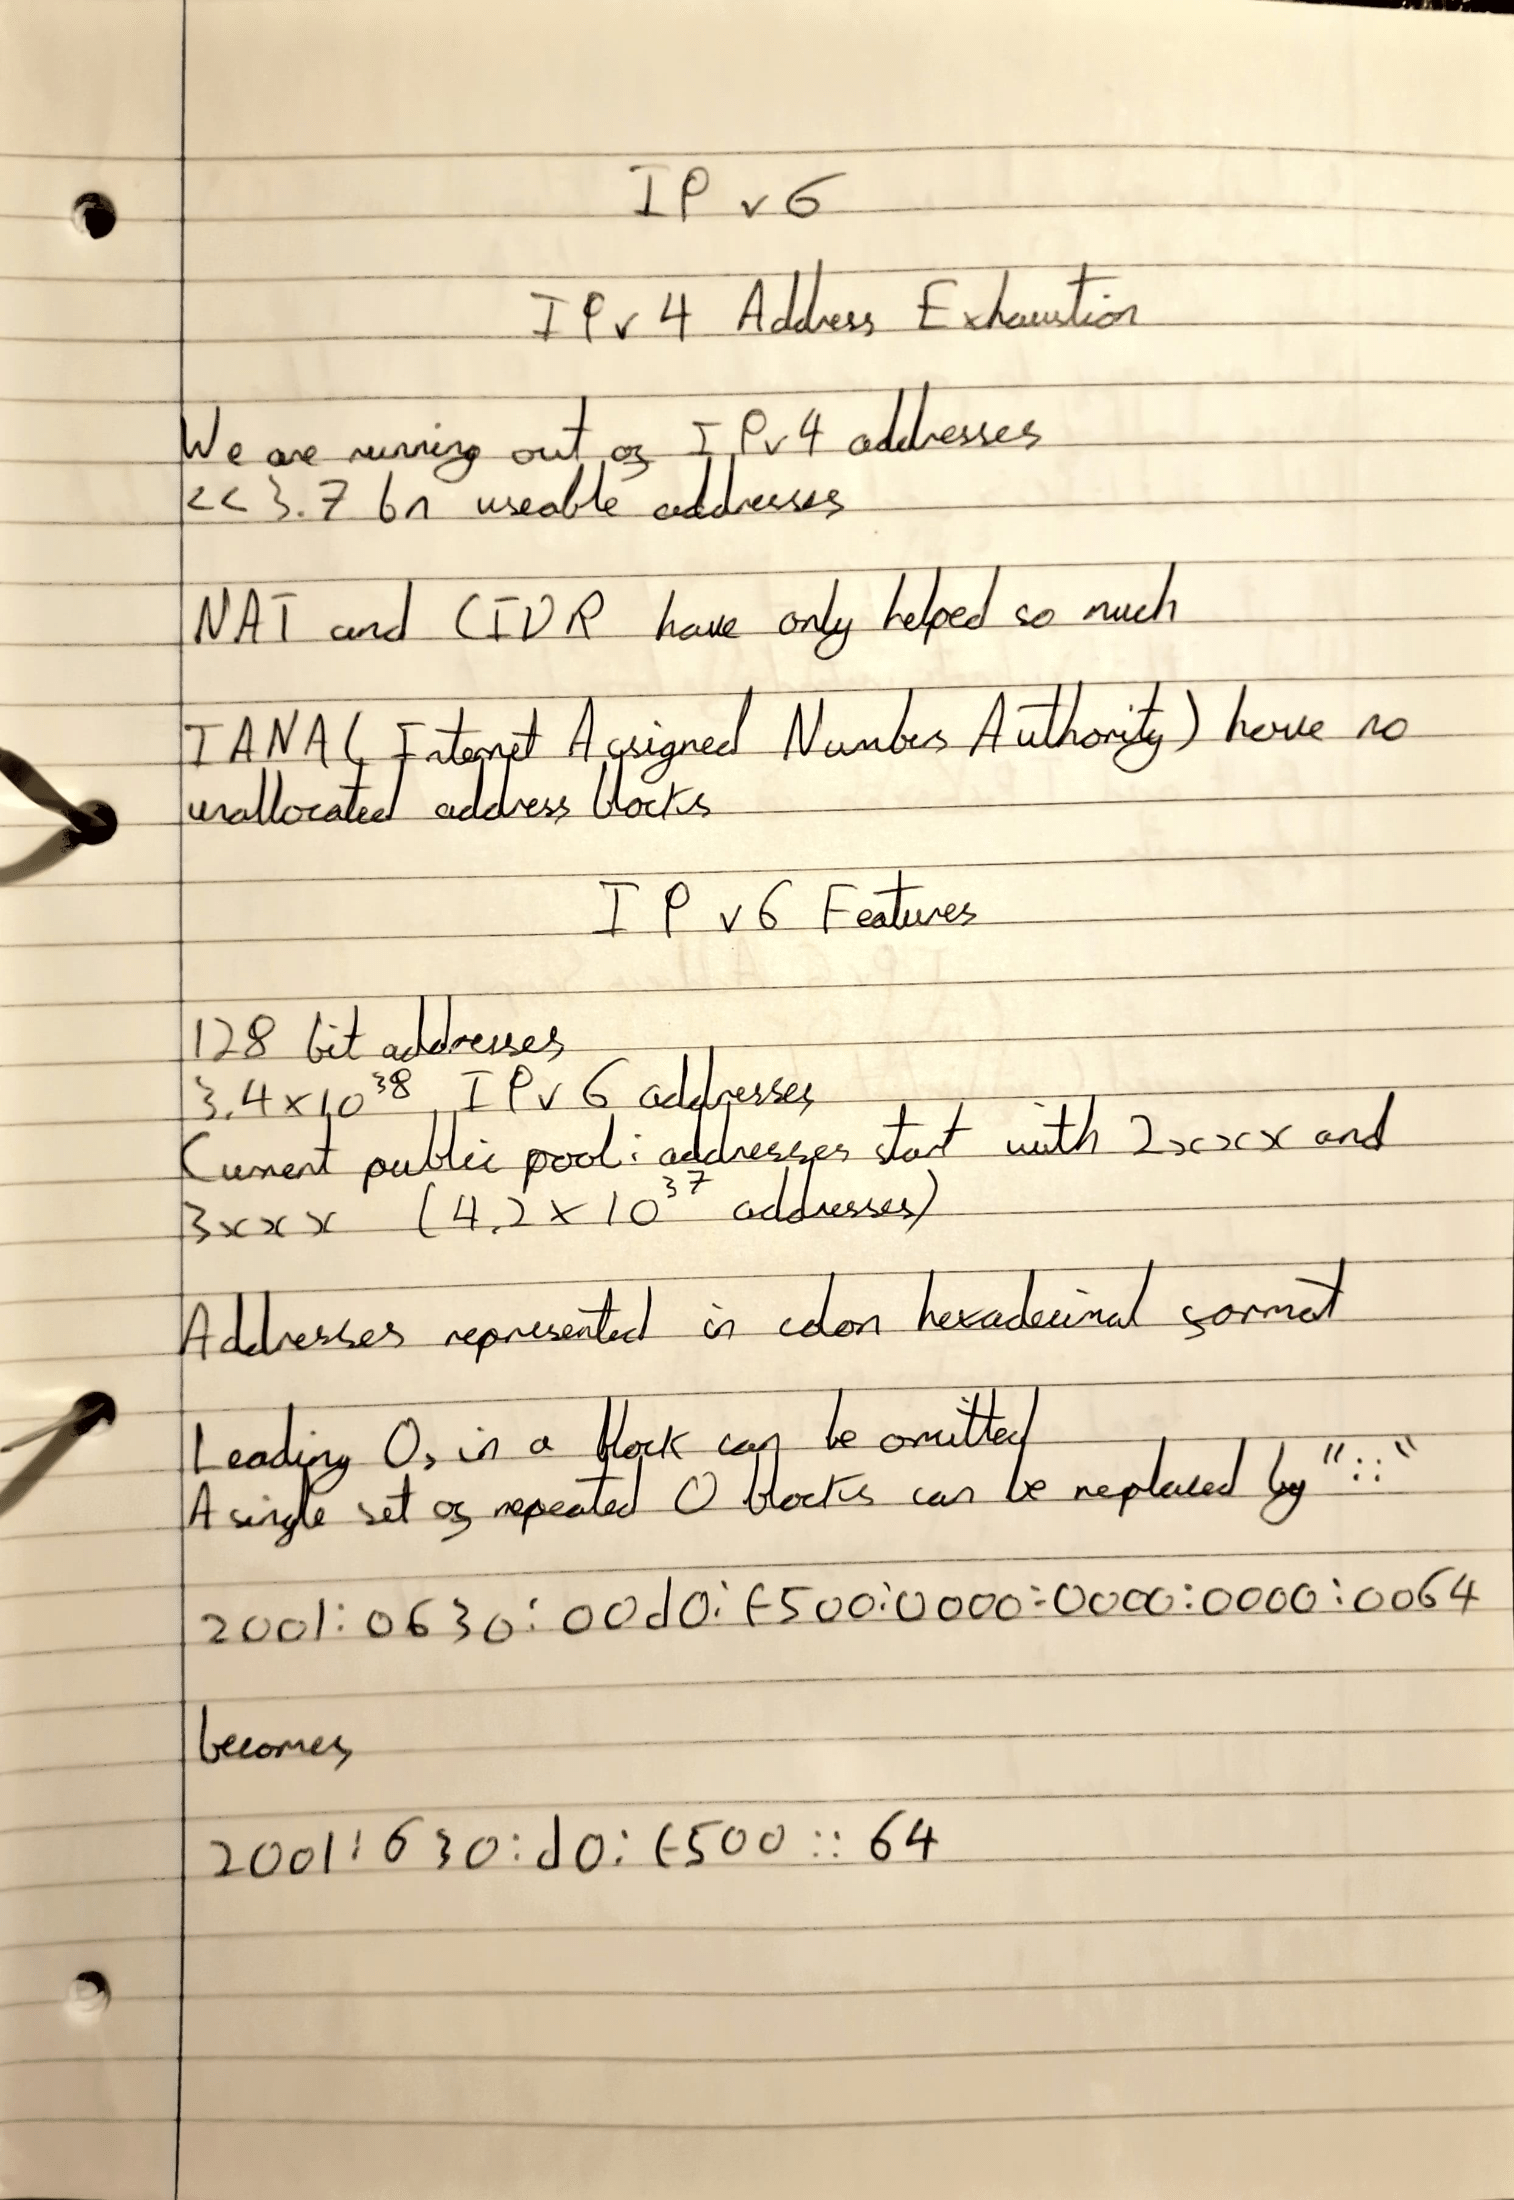 IPv6
IPv4 Address Exhaustion
We are running out of IPv4 addresses
<<3.7 bn useable addresses
NAT and CIDR have only helped so much
IANA (Internet Assigned Numbers Authority) have no
unallocated address blocks
IPv6 Features
128 bit addresses
3.4×10³⁸ IPv6 addresses
Current public pool: addresses start with 2xxx and
3xxx (4.2×10³⁷ addresses)
Addresses represented in colon hexadecimal format
Leading 0s in a block can be omitted
A single set of repeated 0 blocks can be replaced by "::"
2001:0630:00d0:f500:0000:0000:0000:0064
becomes
2001:630:d0:f500::64